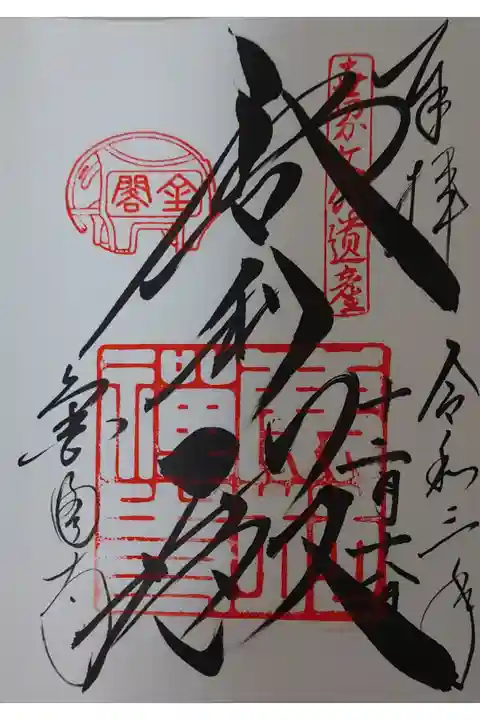 奉拝
令和三年
十二月十六日
世界文化遺産
舎利殿
鹿苑
禅寺
金閣
金閣寺